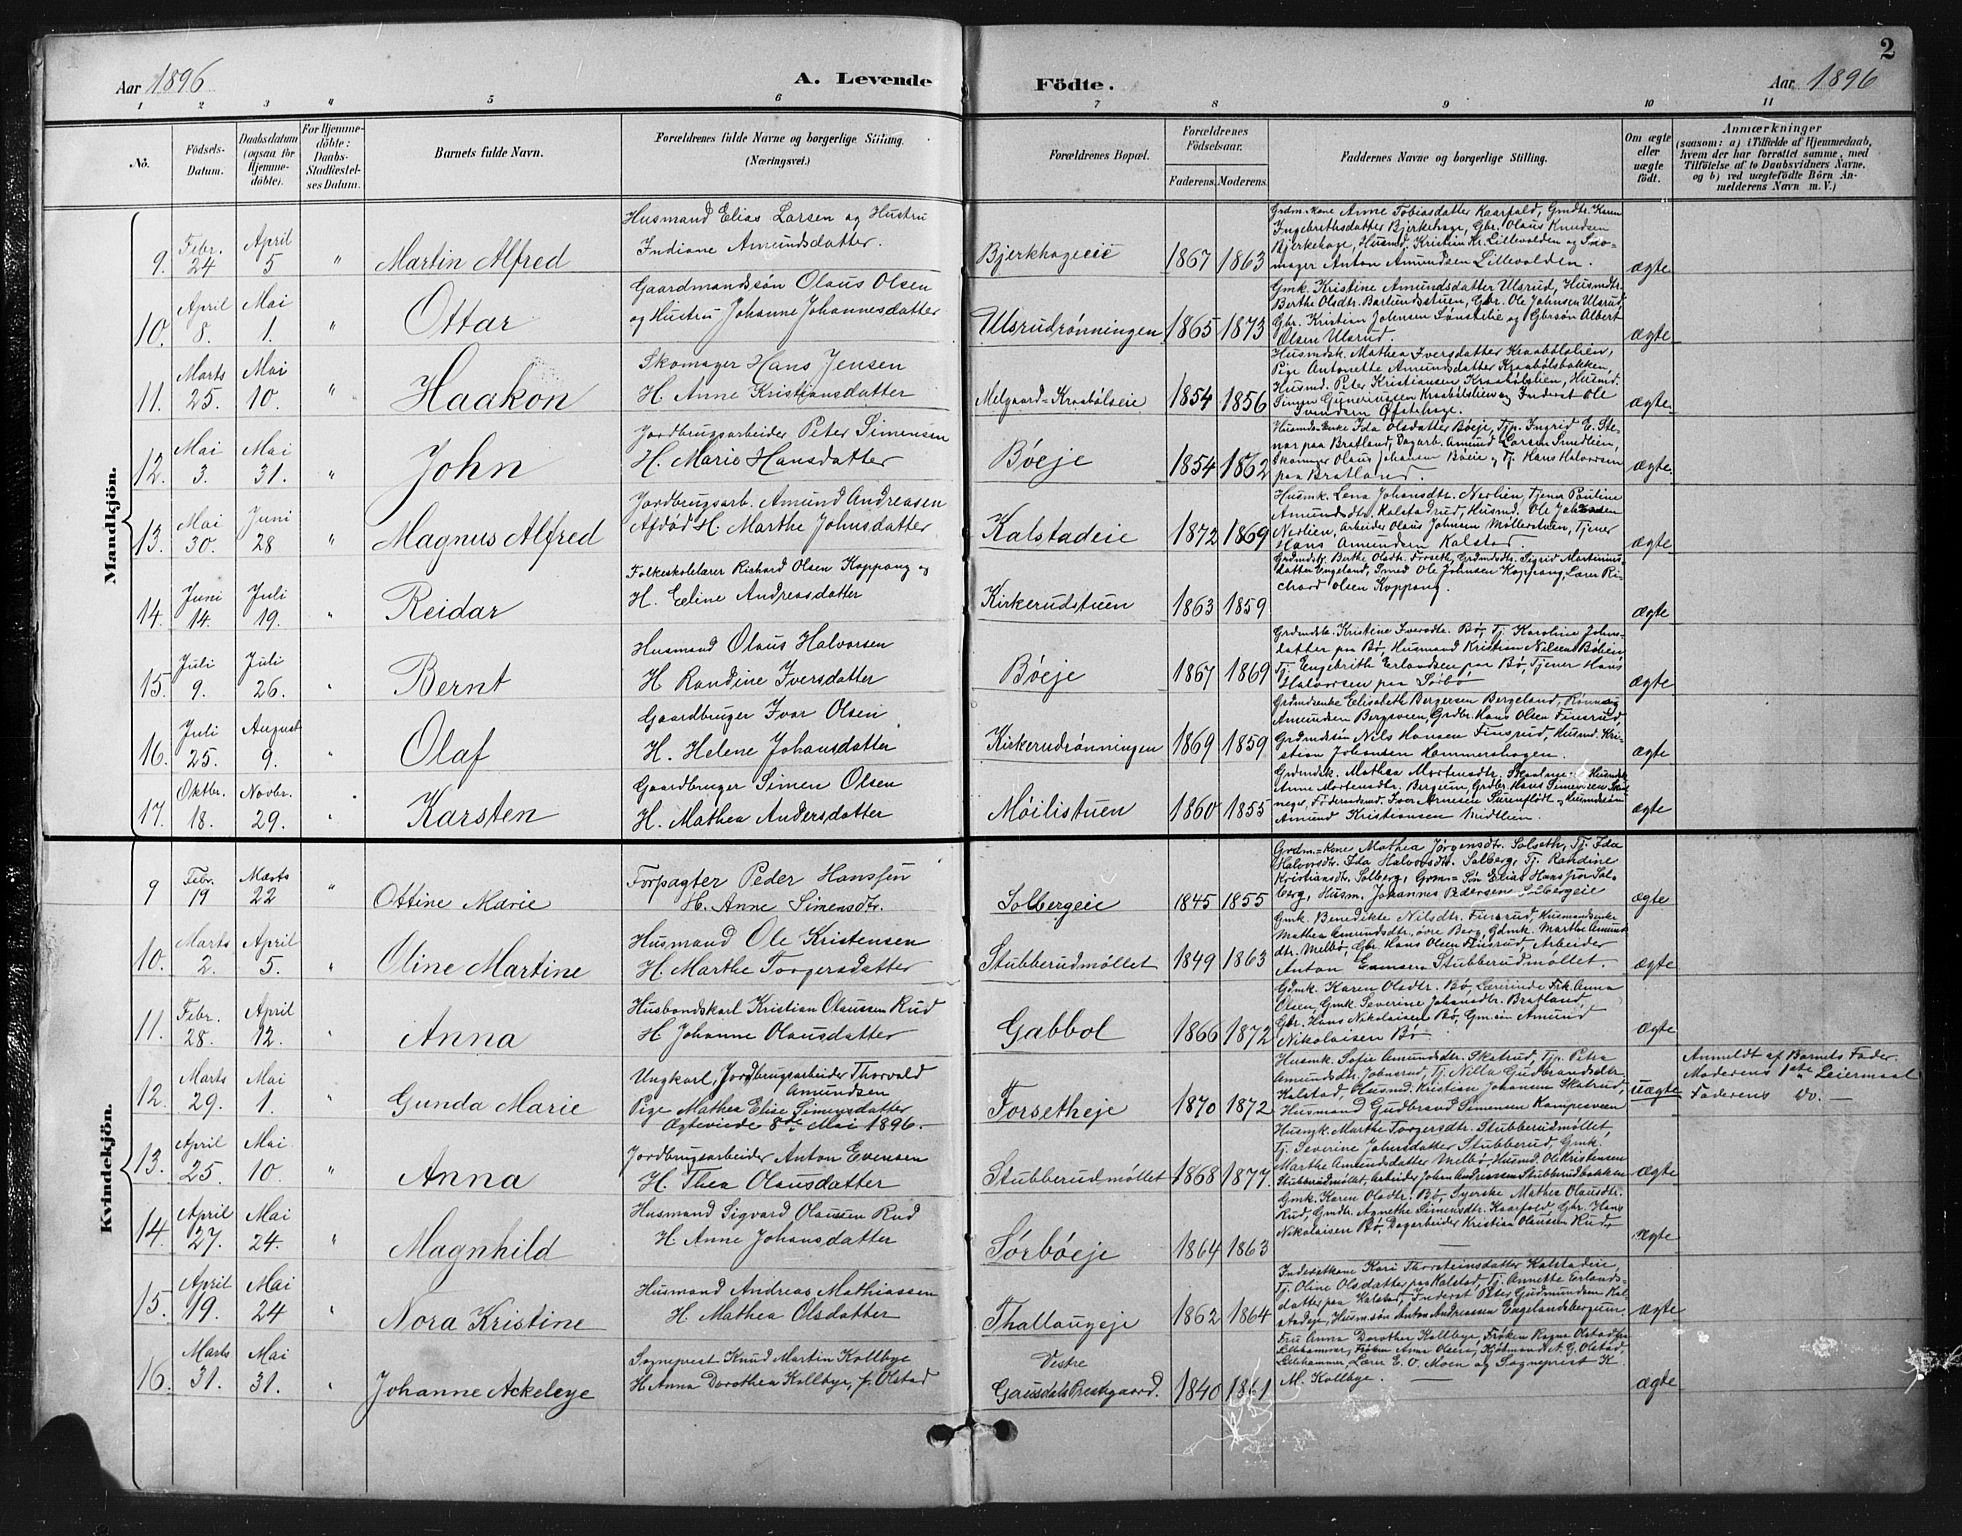 2
Aar 1896
A. Levende Födte.
Aar 1896
1 2 3 4 5 6 7 8 9 10 11
No.
Födsels-Datum.
Daabsdatum (ogsaa for Hjemmedöbte).
For Hjemmedöbte: Daabs-Stadfestelses Datum.
Barnets fulde Navn.
Forældrenes fulde Navne og borgerlige Stilling. (Næringsvei.)
Forældrenes Bopæl.
Forældrenes Födselsaar.
Faderens. Moderens.
Faddernes Navne og borgerlige Stilling.
Om ægte eller uægte födt.
Anmærkninger
(saasom: a) i Tilfælde af Hjemmedaab, hvem der har forrettet samme, med Tilföielse af to Daabsvidners Navne, og b) ved uægtefödte Börn Anmelderens Navn m. V.)
Mandkjön.
9. Febr. 24 April 5 " Martin Alfred
Husmand Elias Larsen og Hustru
Indiane Amundsdatter.
Bjerkhageeie 1867 1863
Grdm.kone Anne Tobiasdatter Kaarfald, Gmdtr. Karen
Ingebrethsdatter Bjerkehage, Gbr. Olaus Knudsen
Bjerkehage, Husmd. Kristian Kr. Lillevolden og Sko-
mager Anton Amundsen Lillevolden.
ægte
10. April 8. Mai 1. " Ottar
Gaardmandssøn Olaus Olsen
og Hustru Johanne Johannesdatter
Ulsrudrønningen 1865 1873
Gmk. Kristine Amundsdatter Ulsrud, Husmdtr.
Berthe Olsdtr. Barlundstuen, Gbr. Ole Johnsen Ulsrud,
Gbr. Kristian Johnsen Sønsterlie og Gbrsøn Albert
Olsen Ulsrud.
ægte
11. Marts 25. Mai 10. " Haakon
Skomager Hans Jensen
H. Anne Kristiansdatter
Melgaard=Kraabølseie 1854 1856
Husmdsk. Mathea Iversdatter Kraabølslien,
Pige Antonette Amundsdatter Kraabølsbakken,
Husmd. Peter Kristiansen Kraabølslien, Husmd.
Simen Kraabølslien og Inderst Ole
Svendsen Øfstehage.
ægte.
12. Mai 3. Mai 31. " John
Jordbrugsarbeider Peter Simensen
H. Marie Hansdatter
Bøeje 1854 1862
Husmds-Enke Ida Olsdatter Bøeje, Tjp. Ingrid E. Ste-
nar paa Bratland, Dagarb. Amund Larsen Smedlien,
Skomager Olaus Johansen Bøeie og Tj. Hans Halvorsen
paa Bratland.
ægte.
13. Mai 30. Juni 28 " Magnus Alfred
Jordbrugsarb. Amund Andreasen
Afdød H. Marthe Johnsdatter
Kalstadeie 1872 1869
Husmk. Lena Johansdtr. Nerlien, Tjener Pauline
Amundsdtr. Kalstadrud, Husmd. Ole Johansen
Nerlien, Arbeider Olaus Johnsen Møllerstuen, Tjener
Hans Amundsen Kalstad.
ægte
14. Juni 14. Juli 19. " Reidar
Folkeskolelærer Richard Olsen Koppang og
H. Eline Andreasdatter
Kirkerudstuen 1863 1859
Grdmdsk. Berthe Olsdtr. Forseth, Grdmdsdtr. Sigrid Martinus-
datter Engeland, Smed Ole Johnsen Koppang, Lærer Ri-
chard Olsen Koppang.
ægte
15. Juli 9. Juli 26. " Bernt
Husmand Olaus Halvorsen
H. Randine Iversdatter
Bøeje 1867 1869
Grdmdsk. Kristine Iversdtr. Bø, Tj. Karoline Johns-
datter paa Bø, Husmand Kristian Nilsen Bølien
Tj. Engebrith Erlandsen paa Bø, Tjener Hans
Halvorsen paa Sørbø
ægte
16. Juli 25. August 9. " Olaf
Gaardbruger Ivar Olsen
H. Helene Johansdatter
Kirkerudrønningen 1869 1859
Grdmdsenke Elisabeth Bergersen Bergeland, Rønnaug
Amundsen Bergsveen, Grdbr. Hans Olsen Finsrud,
Grdmdssøn Nils Hansen Finsrud, Husmd. Kri-
stian Johansen Hammershagen.
ægte
17. Oktbr. 18. Novbr. 29. " Karsten
Gaardbruger Simen Olsen
H. Mathea Andersdatter
Møilistuen 1860 1855
Grdmdsk. Mathea Mortensdtr. Husmdsk.
Anne Mortensdtr. Bergum, Grdbr. Hans Simensen
Føderaadsmd. Iver Arnesen Surenfløtt og Husmdssøn
Amund Kristiansen Midtlien.
ægte
Kvindekjön.
9 Febr. 19 Marts 22 " Ottine Marie
Forpagter Peder Hanssen
H. Anne Simensdtr.
Solbergeie 1845 1855
Grdm=Kone Mathea Jørgensdtr. Solseth, Tj. Ida
Halvorsdtr. Ida Halvorsdtr. Solberg, Tj. Randine
Kristiansdtr. Solberg, Grm=Søn Elias Hanssen Sol-
berg, Husm. Johannes Pedersen Solbergeie
ægte
10. Marts 2. April 5. " Oline Martine
Husmand Ole Kristensen
H. Marthe Torgersdatter
Stubberudmøllet 1849 1863
Gmk. Benedikte Nilsdtr. Finsrud, Husmandsenke
Mathea Amundsdtr. øvre Berg, Gdmk. Marthe Amunds-
dtr. Melbø, Gbr. Hans Olsen Finsrud, Arbeider
Anton Evensen Stubberudmøllet.
ægte
11. Febr. 28. April 12. " Anna
Husbondskarl Kristian Olaussen Rud
H. Johanne Olausdatter
Gabbol 1866 1872
Gdmk. Karen Olsdtr. Bø, Lærerinde Frk. Anna
Olsen, Gmk. Severine Johansdtr. Bratland,
Gbr. Hans Nikolaisen Bø, Gm.søn Amund
Nikolaisen Bø.
ægte
12. Marts 29. Mai 1. " Gunda Marie
Ungkarl, Jordbrugsarbeider Thorvald
Amundsen
Pige Mathea Elise Simensdatter
Ægteviede 8de Mai 1896.
Forsetheje 1870 1872
Husmk. Sofie Amundsdtr. Skatrud, Tjp. Petra
Amundsdtr. Jobnerud, Tj. Nilla Gudbrandsdtr.
Kalstad, Husmd. Kristian Johansen Skatrud,
Husmand Gudbrand Simensen Kampesveen
uægte
Anmeldt af Barnets Fader.
Moderens 1ste Leiermaal
Faderens Do. —
13. April 25. Mai 10. " Anna
Jordbrugsarbeider Anton Evensen
H. Thea Olausdatter
Stubberudmøllet 1868 1877.
Husmk. Marthe Torgersdtr. Stubberudmøllet,
Tj. Severine Johnsdatter Stubberud, Gmk.
Marthe Amundsdatter Melbø, Husmd. Ole Kristensen
Stubberudmøllet, Arbeider Johan Andreassen Stubberudbakken
ægte
14. April 27. Mai 24. " Magnhild
Husmand Sigvard Olaussen Rud
H. Anne Johansdatter
Sørbøeje 1864 1863
Gmk. Karen Olsdtr. Bø, Syerske Mathea Olausdtr.
Rud, Gmdtr. Agnethe Simensdtr. Kaarfald, Gbr. Hans
Nikolaisen Bø, Dagarbeider Kristian Olausen Rud.
ægte
15. April 19. Mai 24 " Nora Kristine
Husmand Andreas Mathiassen
H. Mathea Olsdatter
Thallaugeje 1862 1864
Inderstkone Kari Thorsteinsdatter Kalstadeie,
Tj. Oline Olsdatter paa Kalstad, Tj. Annette Erlands-
datter paa Kalstad, Inderst Peter Gudmundsen Kal-
stadeje, Husm.søn Anton Andreassen Engelandsbergum
ægte
16. Marts 31. Mai 31. " Johanne Ackeleye
Sognepræst Knud Martin Kollbye
H. Anna Dorothea Kollbye, f. Olstad
Vestre
Gausdals Prestgaard. 1840 1861
Fru Anna Dorothea Kollbye, Frøken Ragna Olstad fra
Lillehammer, Frøken Anna Olsen, Kjøbmand A. G. Olstad,
Lillehammer, Lærer E. O. Moen og Sognepræst K.
M. Kollbye. —
ægte